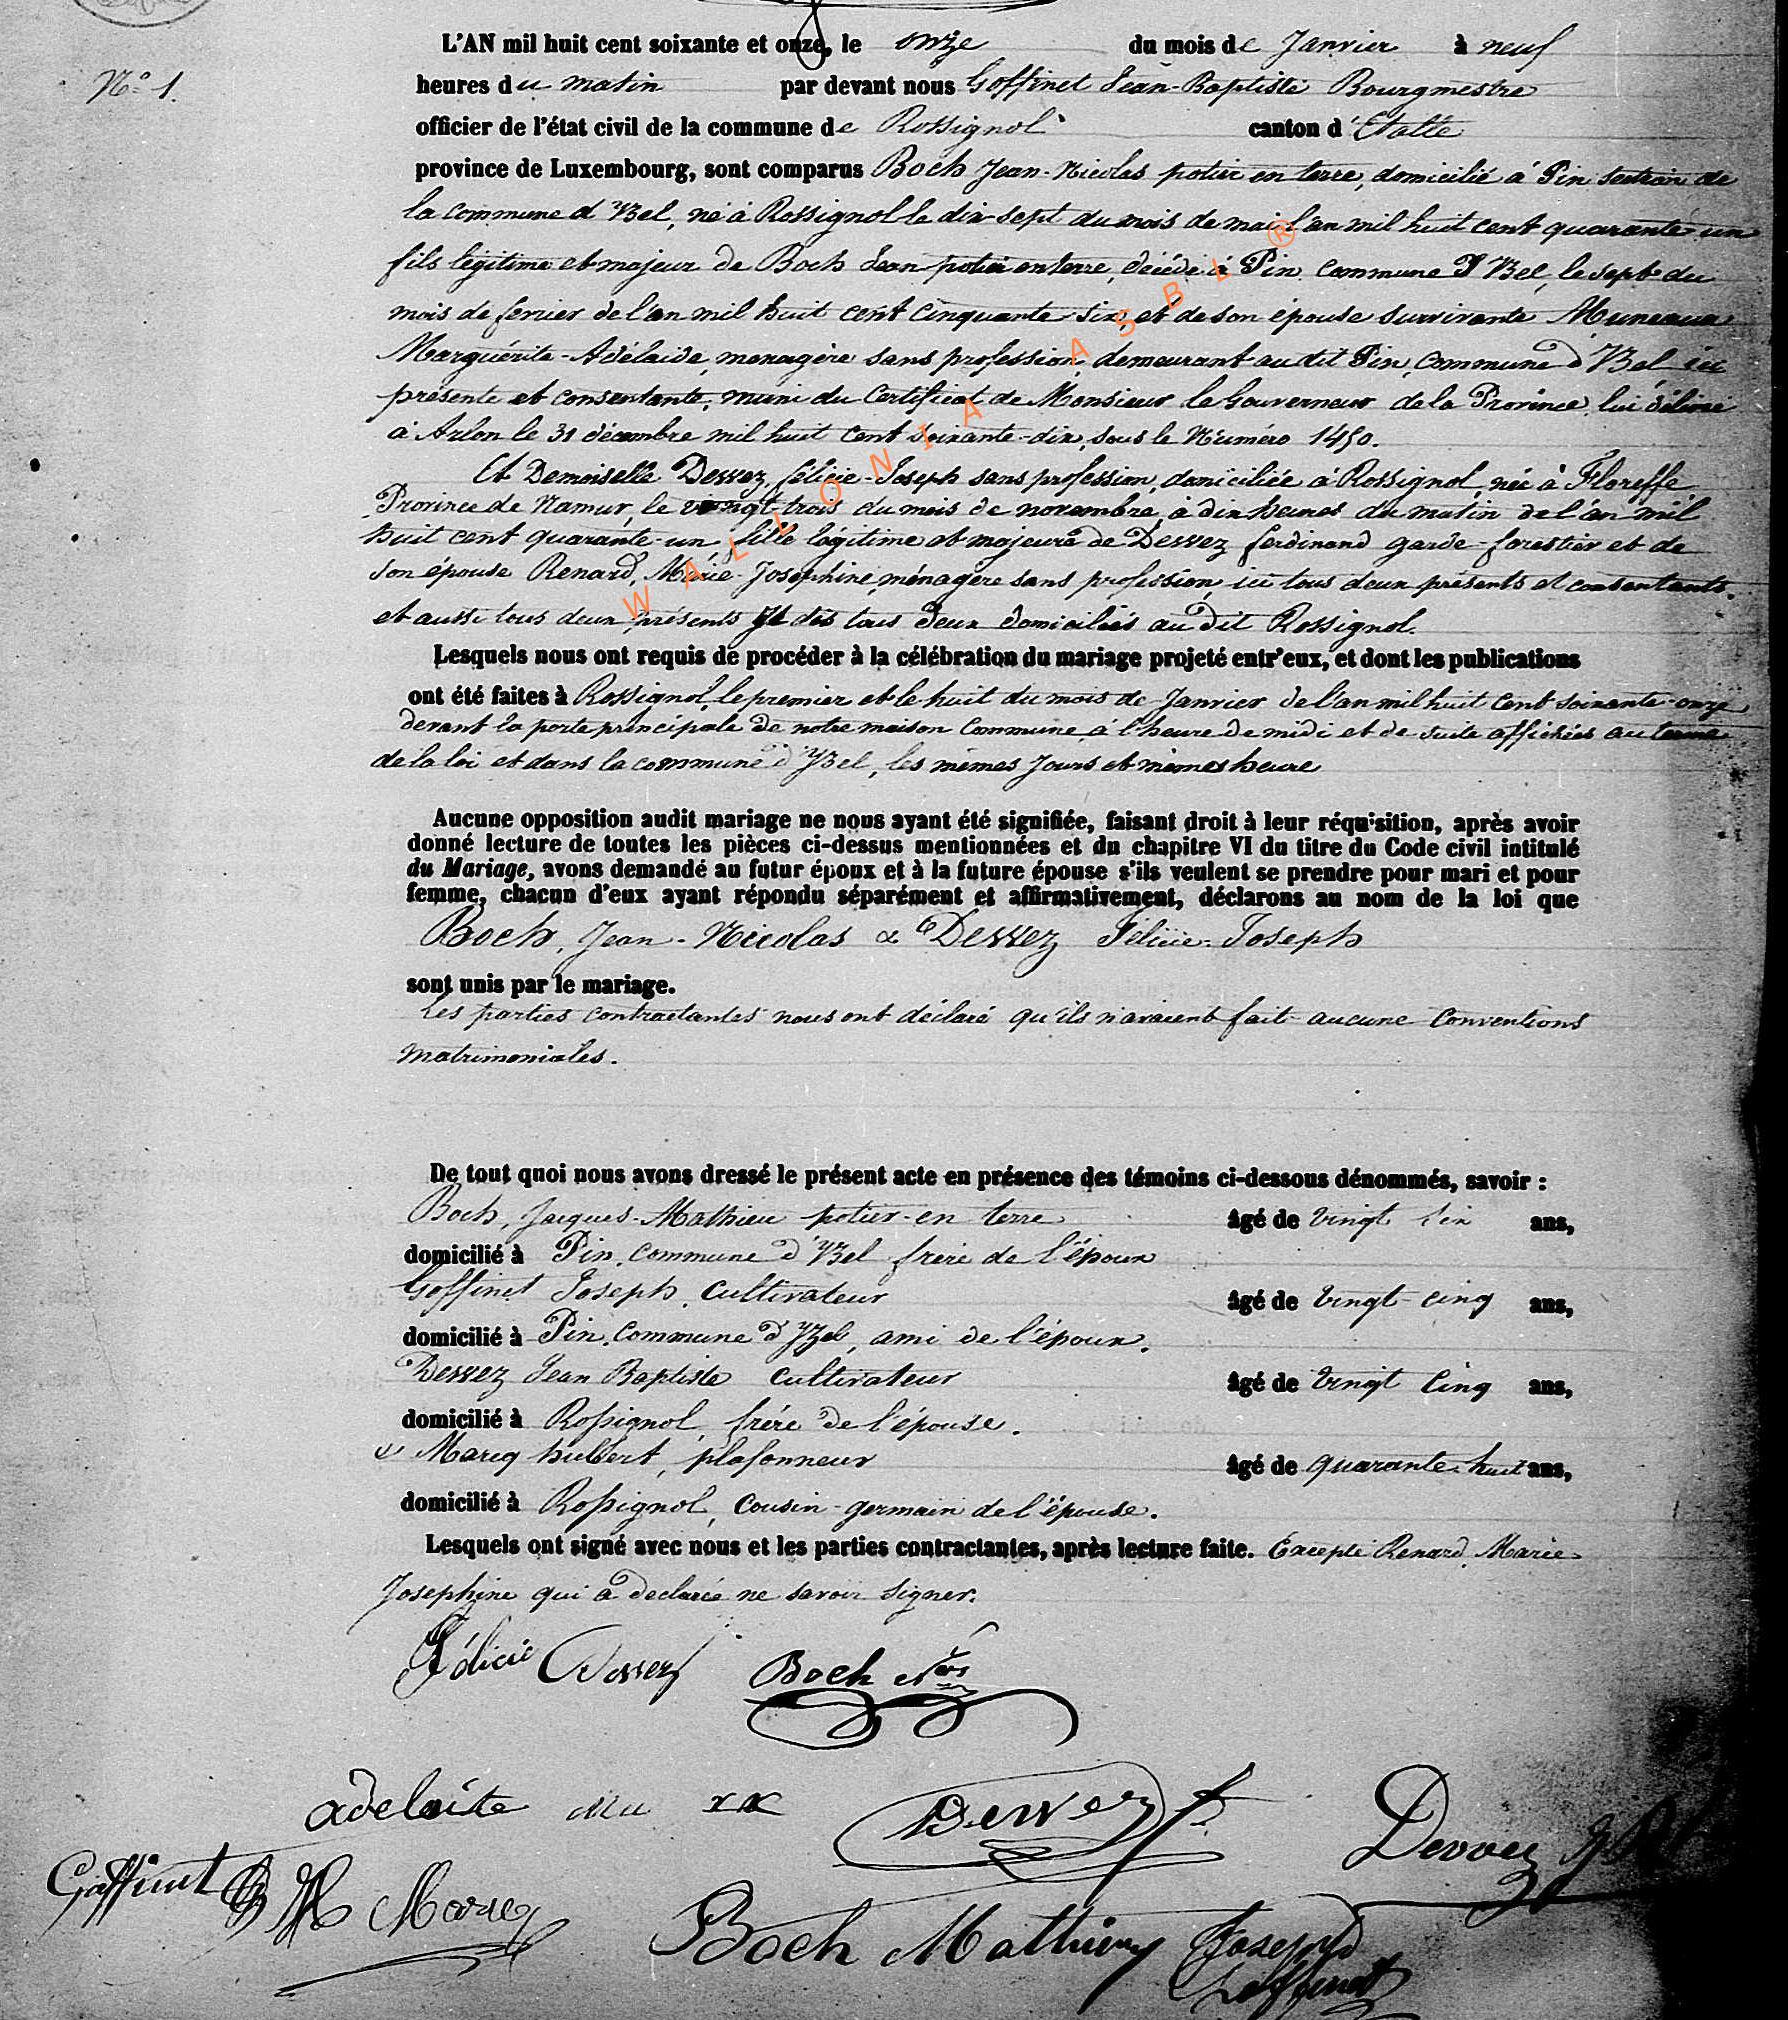 L'AN mil huit cent soixante et onze, le onze du mois de Janvier à neuf
N° 1.
heures du matin par devant nous Goffinet Jean-Baptiste Bourgmestre
officier de l'état civil de la commune de Rossignol canton d'Etalle
province de Luxembourg, sont comparus Boch Jean-Nicolas potier en terre, domicilié à Pin section de
la commune d'Yzel, né à Rossignol le dix-sept du mois de mai l'an mil huit cent quarante-un
fils légitime et majeur de Boch Jean potier en terre, décédé à Pin commune d'Yzel, le sept du
mois de fevrier de l'an mil huit cent cinquante-six, et de son épouse survivante Muneaux
Marguérite-Adélaide, menagère sans profession, demeurant au dit Pin, commune d'Yzel ici
présente et consentante, muni du Certificat de Monsieur le Gouverneur de la Province, lui délivré
à Arlon le 31 décembre mil huit cent soixante-dix, sous le Numéro 1450.
Et Demoiselle Dewez, félicie-Joseph sans profession, domiciliée à Rossignol, née à Floreffe
Province de Namur, le vingt-trois du mois de novembre, à dix heures du matin de l'an mil
huit cent quarante-un fille légitime et majeure de Dewez ferdinand garde-forestier et de
son épouse Renard, Marie-Josephine, ménagère sans profession, ici tous deux présents et consentants.
et aussi tous deux présents et dis tous deux domiciliés au dit Rossignol.
Lesquels nous ont requis de procéder à la célébration du mariage projeté entr'eux, et dont les publications
ont été faites à Rossignol, le premier et le huit du mois de Janvier de l'an mil huit cent soixante-onze
devant la porte principale de notre maison Commune, à l'heure de midi et de suite affichées au terme
de la loi et dans la commune d'Yzel, les mêmes jours et mêmes heure
Aucune opposition audit mariage ne nous ayant été signifiée, faisant droit à leur réquisition, après avoir
donné lecture de toutes les pièces ci-dessus mentionnées et du chapitre VI du titre du Code civil intitulé
du Mariage, avons demandé au futur époux et à la future épouse s'ils veulent se prendre pour mari et pour
femme, chacun d'eux ayant répondu séparément et affirmativement, déclarons au nom de la loi que
Boch, Jean-Nicolas & Dewez Félicie-Joseph
sont unis par le mariage.
Les parties contractantes nous ont déclaré qu'ils n'avaient fait aucune Conventions
matrimoniales.
De tout quoi nous avons dressé le présent acte en présence des témoins ci-dessous dénommés, savoir :
Boch, Jacques-Mathieu potier-en terre âgé de vingt six ans,
domicilié à Pin, commune d'Yzel frère de l'époux
Goffinet Joseph, cultivateur âgé de vingt-cinq ans,
domicilié à Pin, Commune d'Yzel, ami de l'époux.
Dewez Jean Baptiste cultivateur âgé de vingt cinq ans,
domicilié à Rossignol, frère de l'épouse.
& Marcq hubert, plafonneur âgé de quarante-huit ans,
domicilié à Rossignol, cousin-germain de l'épouse.
Lesquels ont signé avec nous et les parties contractantes, après lecture faite. Excepté Renard, Marie-
Josephine qui a declarée ne savoir signer.
Félicie Dewez Boch Nas
adelaite mu
Dewez f. Dewez J Bte
Goffinet JB H Marcq
Boch Mathieu Joseph
Goffinet
WALLONIA ASBL ®